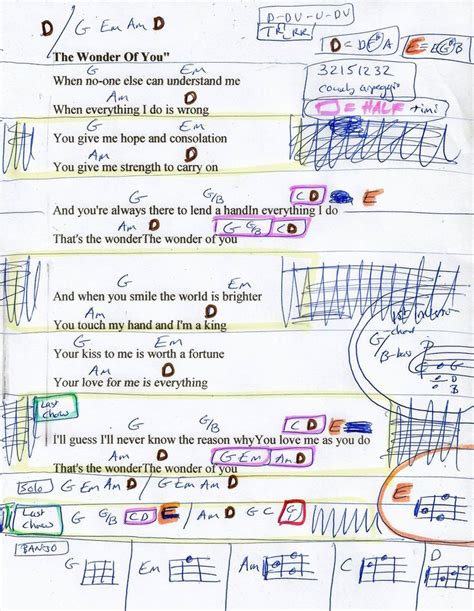 D / G Em Am D
D-DU-U-DU
D = D F# A
E = E G# B
The Wonder Of You"
32151232
G Em
When no-one else can understand me
= HALF time
Am D
When everything I do is wrong
G Em
You give me hope and consolation
Am D
You give me strength to carry on
G G/B C D E
And you're always there to lend a handIn everything I do
Am D G G/B C D
That's the wonderThe wonder of you
G Em
And when you smile the world is brighter
Am D
You touch my hand and I'm a king
G Em
Your kiss to me is worth a fortune
G/B - bass
Am D
Your love for me is everything
Last
G G/B C D E
I'll guess I'll never know the reason whyYou love me as you do
Am D G Em Am D
That's the wonderThe wonder of you
Solo G Em Am D / G Em Am D
E
Last G G/B C D E / Am D G C G
BANJO
G Em Am C D